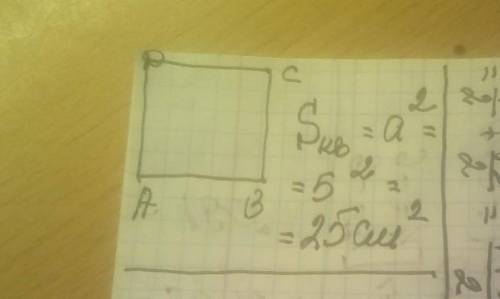 D C
A B
Sкв = a² =
= 5² =
= 25 см²